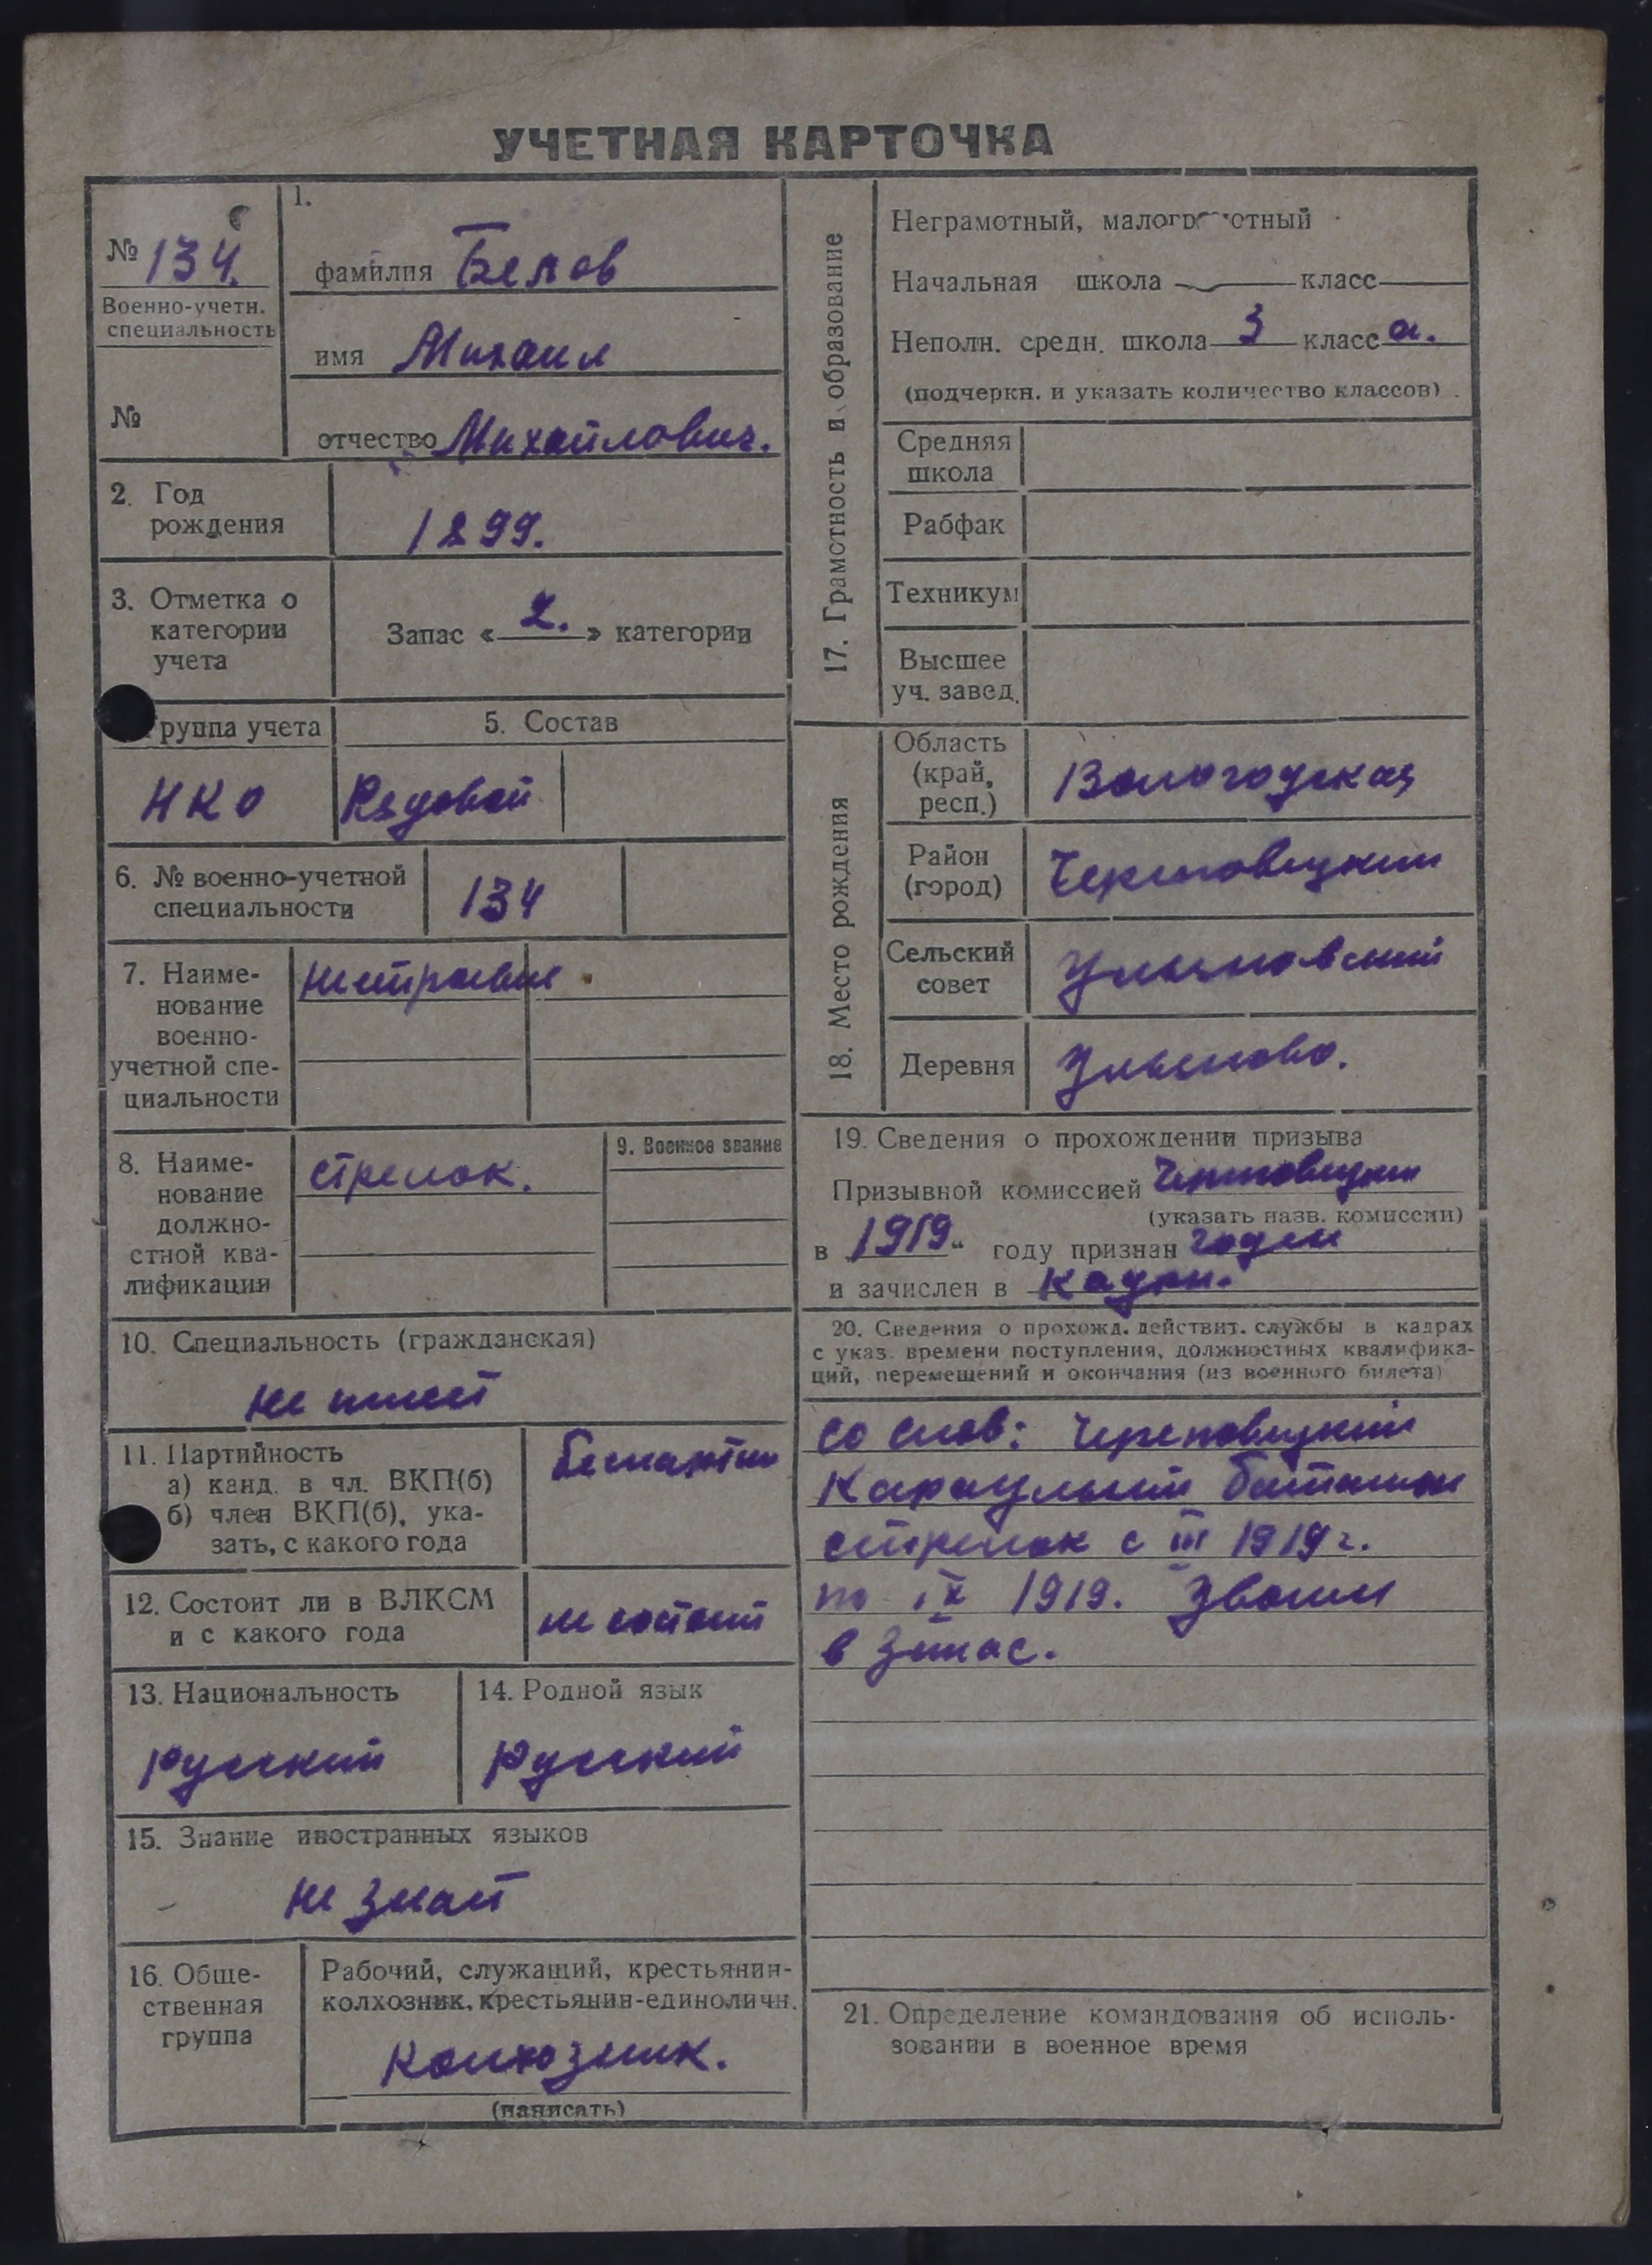 УЧЕТНАЯ КАРТОЧКА
№ 134.
Военно-учетн.
специальность
№
1.
фамилия Белов
имя Михаил
отчество Михайлович.
2. Год
рождения
1899.
3. Отметка о
категории
учета
Запас « 2. » категории
руппа учета
НКО
5. Состав
Рядовой
6. № военно-учетной
специальности
134
7. Наиме-
нование
военно-
учетной спе-
циальности
8. Наиме-
нование
должно-
стной ква-
лификации
стрелок.
9. Военное звание
10. Специальность (гражданская)
не имеет
11. Партийность
а) канд. в чл. ВКП(б)
б) член ВКП(б), ука-
зать, с какого года
12. Состоит ли в ВЛКСМ
и с какого года
не состоит
13. Национальность
русский
14. Родной язык
русский
15. Знание иностранных языков
не знает
16. Обще-
ственная
группа
Рабочий, служащий, крестьянин-
колхозник, крестьянин-единоличн.
Колхозник.
(написать)
17. Грамотность и образование
Неграмотный, малограмотный
Начальная школа — класс
Неполн. средн. школа 3 класс а.
(подчеркн. и указать количество классов)
Средняя
школа
Рабфак
Техникум
Высшее
уч. завед.
18. Место рождения
Область
(край,
респ.)
Вологодская
Район
(город)
Череповецкий
Сельский
совет
Деревня
19. Сведения о прохождении призыва
Призывной комиссией
(указать назв. комиссии)
в 1919 году признан годен
и зачислен в кадры.
20. Сведения о прохожд. действит. службы в кадрах
с указ. времени поступления, должностных квалифика-
ций, перемещений и окончания (из военного билета)
со слов: Череповецкий
Караульный батальон
стрелок с III 1919 г.
по IX 1919. Уволен
в запас.
21. Определение командования об исполь-
зовании в военное время